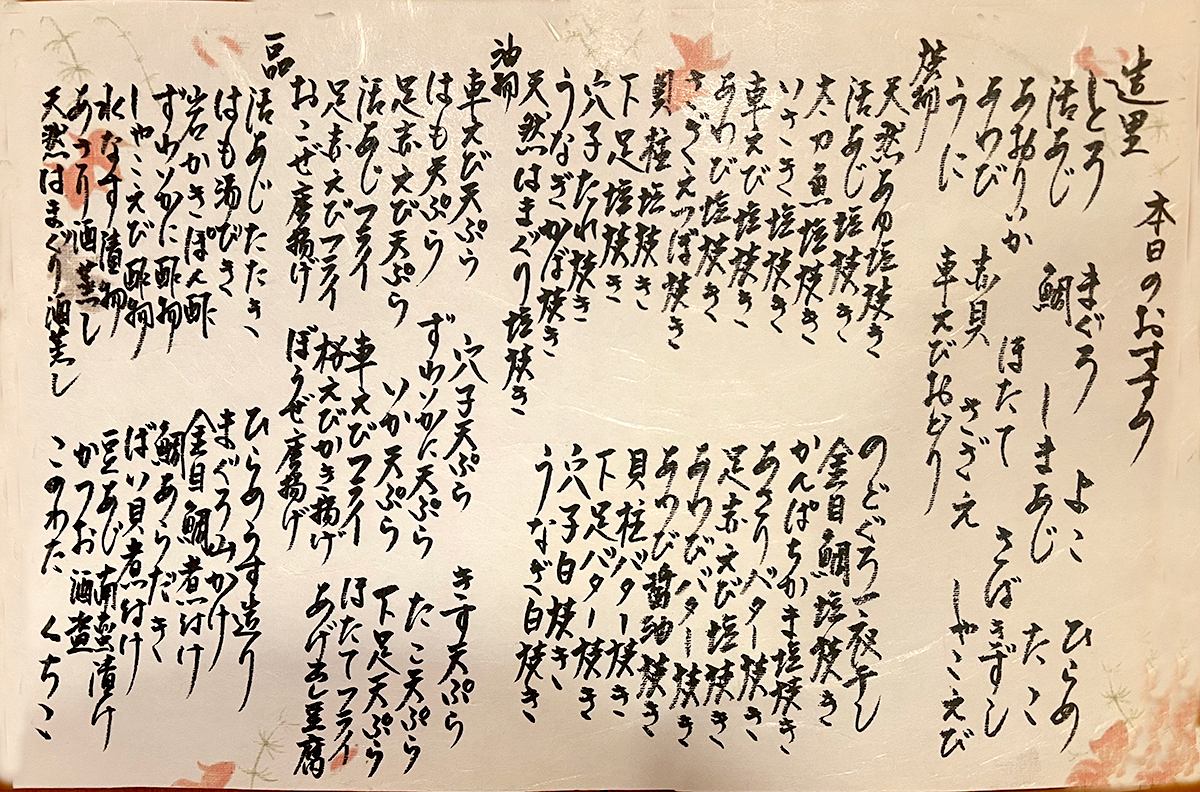 本日のおすすめ
造里
とろ まぐろ よこ ひらめ
活あじ 鯛 しまあじ たこ
あおりいか ほたて さばきずし
あわび 赤貝 さざえ しゃこえび
うに 車えびおどり
焼物
天然あゆ塩焼き のどぐろ一夜干し
活あじ塩焼き 金目鯛塩焼き
太刀魚塩焼き かんぱちかま塩焼き
いさき塩焼き あさりバター焼き
車えび塩焼き 足赤えび塩焼き
あわび塩焼き あわびバター焼き
さざえつぼ焼き あわび醤油焼き
貝柱塩焼き 貝柱バター焼き
下足塩焼き 下足バター焼き
穴子たれ焼き 穴子白焼き
うなぎかば焼き うなぎ白焼き
天然はまぐり塩焼き
油物
車えび天ぷら 穴子天ぷら きす天ぷら
はも天ぷら ずわいかに天ぷら たこ天ぷら
足赤えび天ぷら いか天ぷら 下足天ぷら
活あじフライ 車えびフライ ほたてフライ
足赤えびフライ 桜えびかき揚げ あげ出し豆腐
おこぜ唐揚げ ぼうぜ唐揚げ
一品
活あじたたき ひらめうす造り
はも湯びき まぐろ山かけ
岩かきぽん酢 金目鯛煮付け
ずわいかに酢物 鯛あらだき
しゃこえび酢物 ばい貝煮付け
水なす漬物 豆あじ南蛮漬け
あさり酒蒸し かつお酒盗
天然はまぐり酒蒸し このわた くちこ